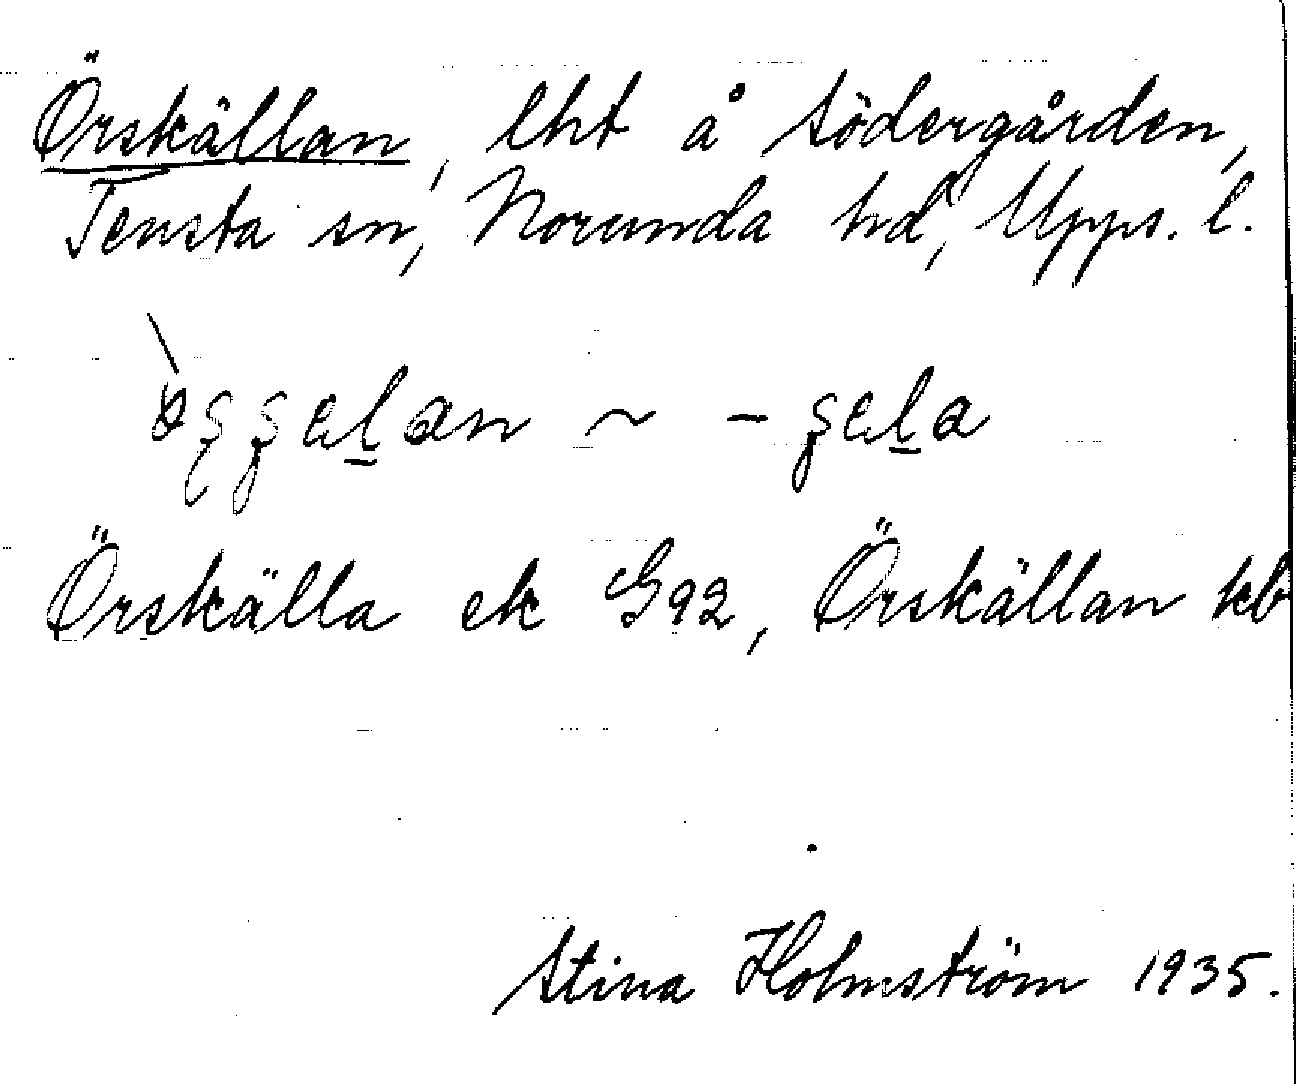 Örskällan, lht å Södergården,
Tensta sn, Norunda hd, Upps. l.
Örskälla ek G92, Örskällan kb
Stina Holmström 1935.